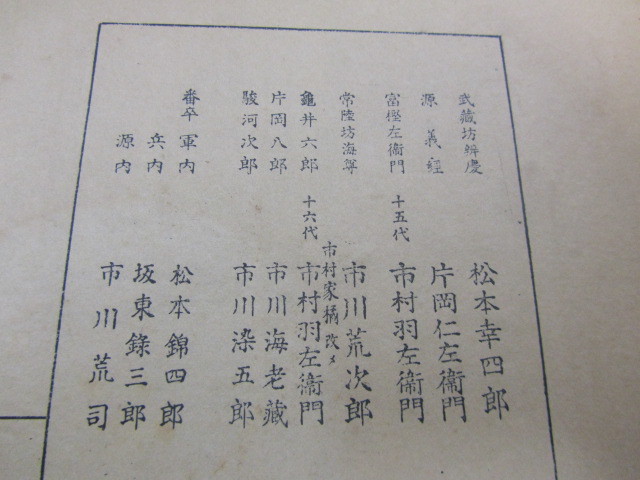 武藏坊辨慶 松本幸四郎
源義經 片岡仁左衞門
富樫左衞門 十五代 市村羽左衞門
常陸坊海尊 市川荒次郎
市村家橘改メ
龜井六郎 十六代 市村羽左衞門
片岡八郎 市川海老藏
駿河次郎 市川染五郎
番卒 軍内 松本錦四郎
兵内 坂東錄三郎
源内 市川荒司